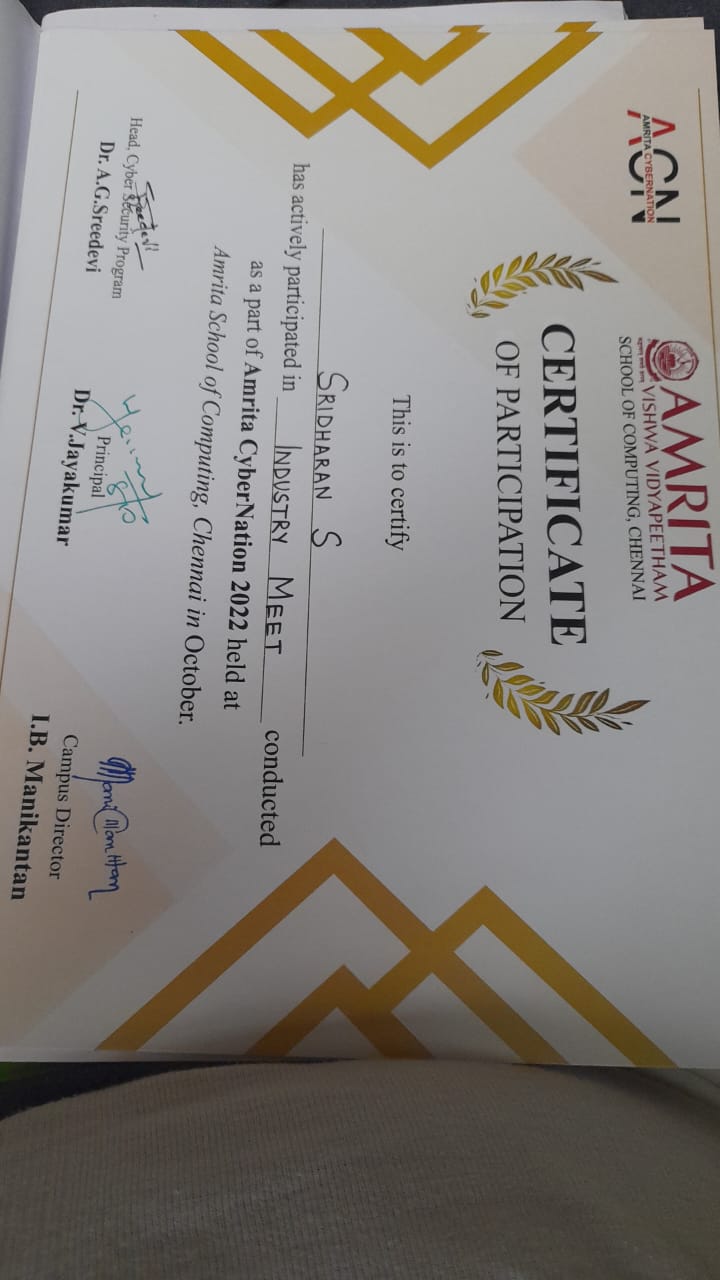 ACN
AMRITA CYBERNATION
AMRITA
VISHWA VIDYAPEETHAM
SCHOOL OF COMPUTING, CHENNAI
CERTIFICATE
OF PARTICIPATION
This is to certify
SRIDHARAN S
has actively participated in INDUSTRY MEET conducted
as a part of Amrita CyberNation 2022 held at
Amrita School of Computing, Chennai in October.
Head, Cyber Security Program
Dr. A.G.Sreedevi
Principal
Dr. V.Jayakumar
Campus Director
I.B. Manikantan